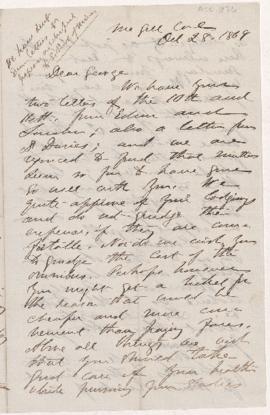 We have sent
McGill Coll
Oct 28. 1869
Dear George
We have your
two letters of the 10th and
from Edin and
London, also a letter from
Dr Davies, and we are
rejoiced to find that matters
seem so far to have gone
so well with you. We
quite approve of your lodgings
and do not grudge the
expense if they are com
fortable. Nor do we wish you
to grudge the cost of the
omnibus. Perhaps however
you might get a ticket for
the season that would be
cheaper and more conve
nient than paying fares.
Above all things we wish
that you should take
great care of your health
while pursuing your studies